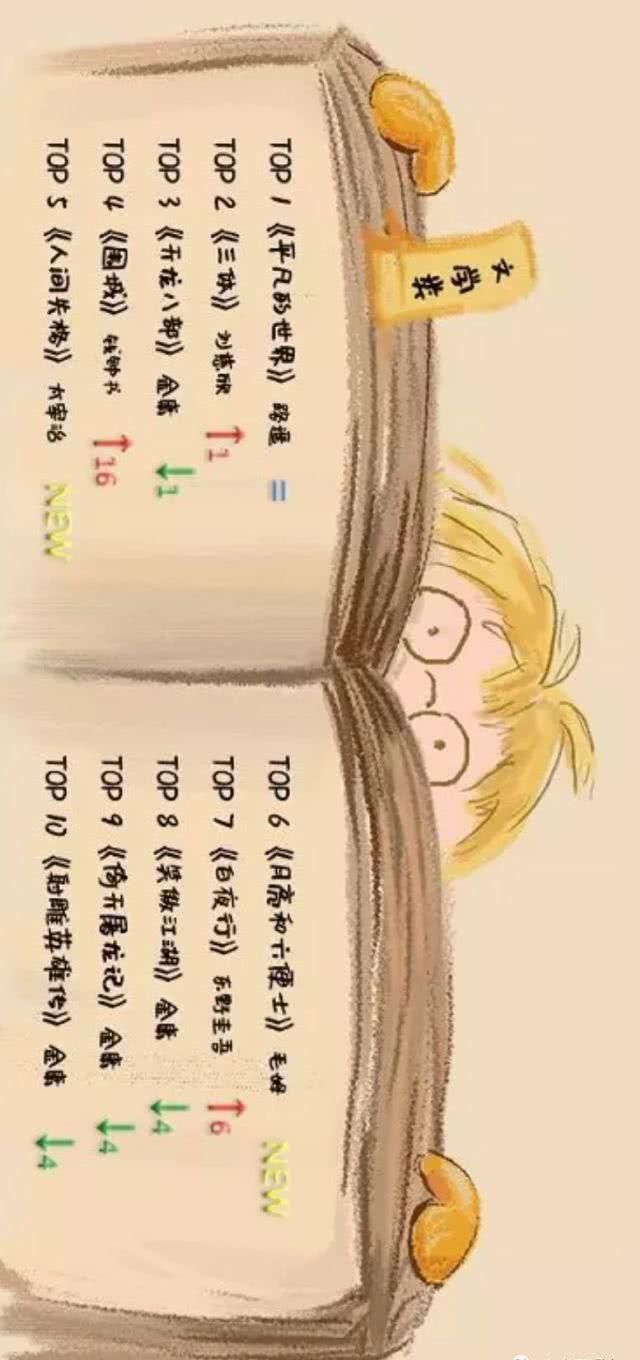 文学类
TOP 1 《平凡的世界》 路遥 =
TOP 2 《三体》 刘慈欣 ↑1
TOP 3 《天龙八部》 金庸 ↓1
TOP 4 《围城》 钱钟书 ↑16
TOP 5 《人间失格》 太宰治 NEW
TOP 6 《月亮和六便士》 毛姆 NEW
TOP 7 《白夜行》 东野圭吾 ↑6
TOP 8 《笑傲江湖》 金庸 ↓4
TOP 9 《倚天屠龙记》 金庸 ↓4
TOP 10 《射雕英雄传》 金庸 ↓4